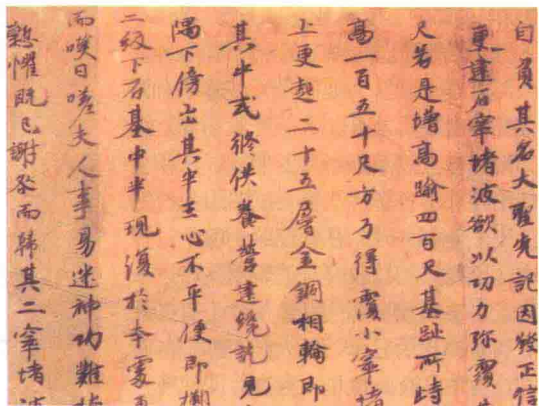 自負其名大聖先記因發正信
更建石窣堵波欲以功力弥覆
尺若是增高踰四百尺基趾所峙
高一百五十尺方乃得覆小窣堵
上更起二十五層金銅相輪即
其中式修供養營建纔訖見
隅下傍出其半王心不平便即擲
二級下石基中半現復於本處更
而嘆曰嗟夫人事易迷神功難掩
慙懼既已謝咎而歸其二窣堵波